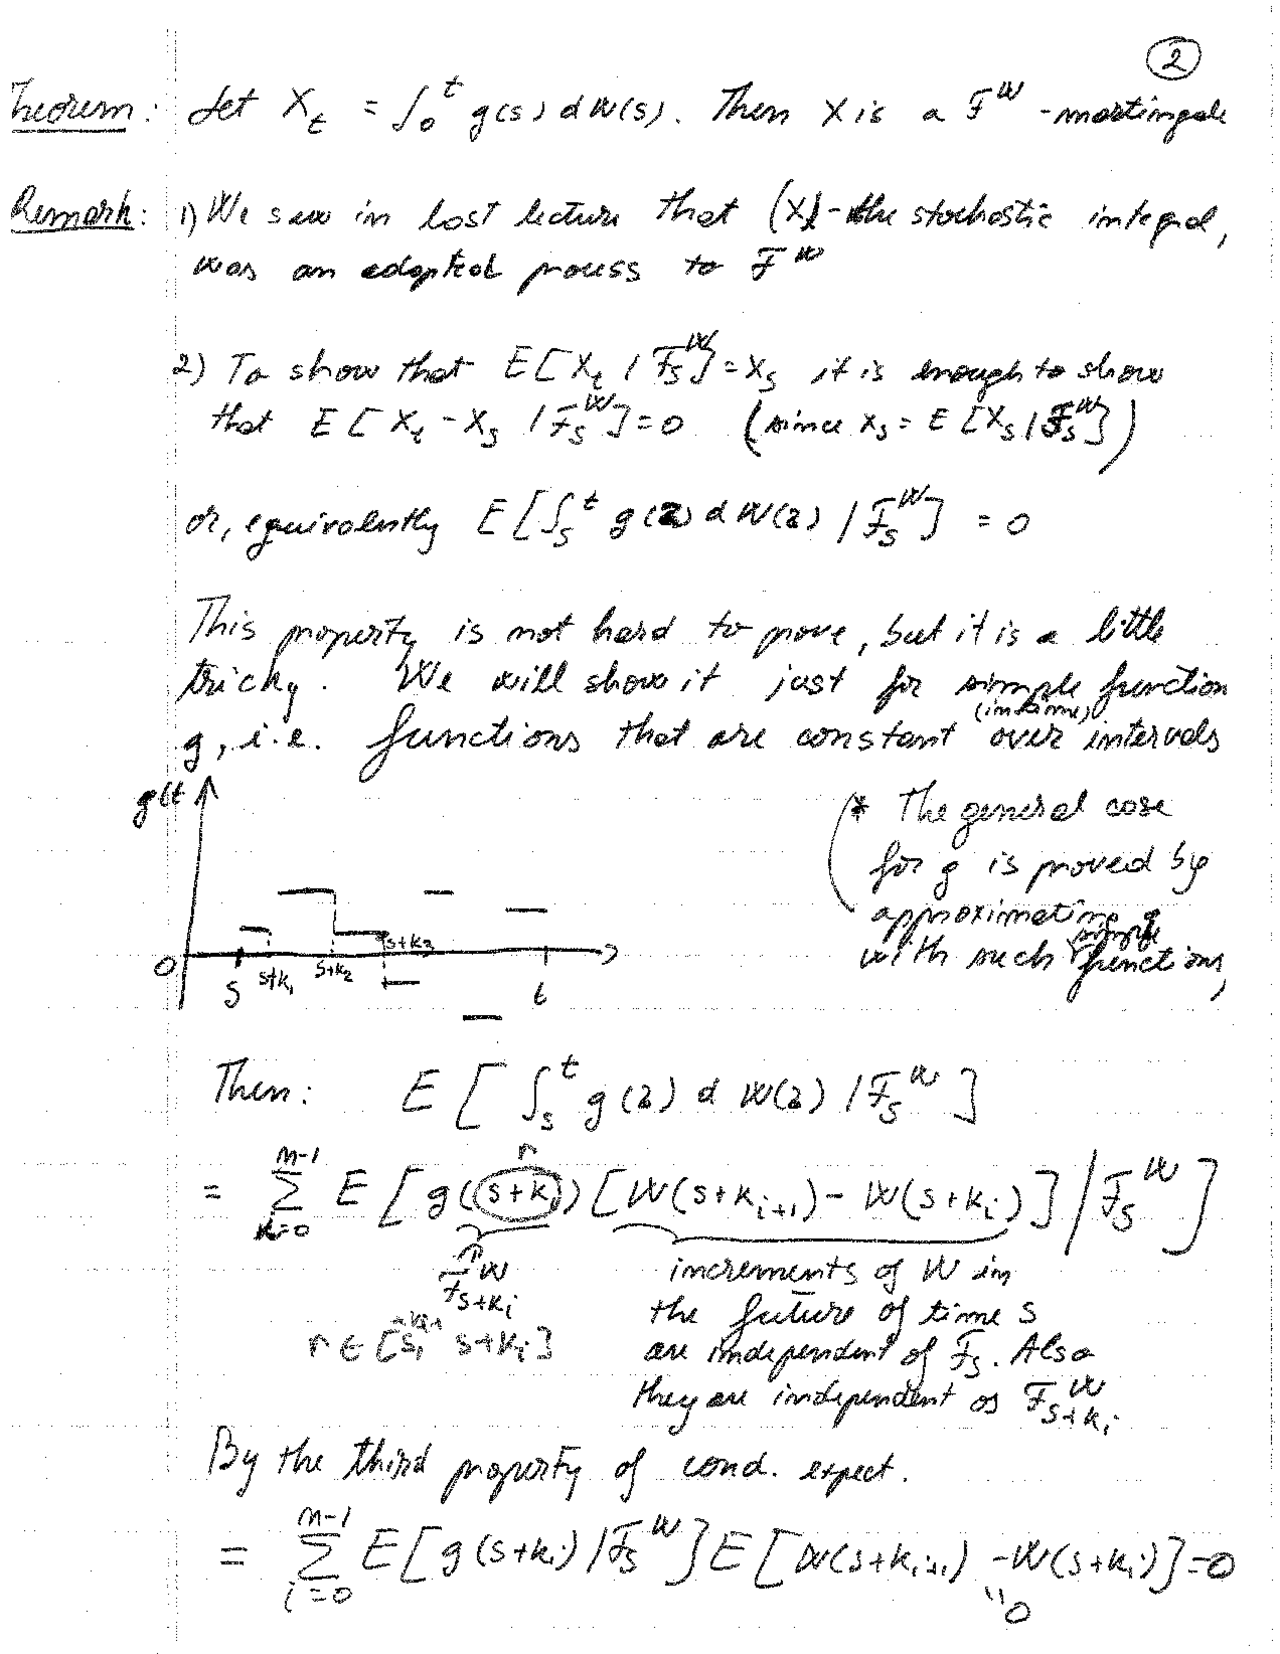 2
Theorem: Let X_t = ∫_0^t g(s) dW(s). Then X is a F^W - martingale
Remark: 1) We saw in last lecture that (X) - the stochastic integral,
was an adapted process to F^W
2) To show that E[X_t / F_s^W] = X_s it is enough to show
that E[X_t - X_s / F_s^W] = 0 (since X_s = E[X_s / F_s^W])
or, equivalently E[∫_s^t g(z) dW(z) / F_s^W] = 0
This property is not hard to prove, but it is a little
tricky. We will show it just for simple function
(in time)
g, i.e. functions that are constant over intervals
g(t
* The general case
for g is proved by
approximating g
simple
with such functions,
s+k_3
0 s s+k_1 s+k_2 t
Then: E[∫_s^t g(z) dW(z) / F_s^W]
r
= Σ_{i=0}^{n-1} E[g(s+k_i) [W(s+k_{i+1}) - W(s+k_i)] / F_s^W]
F^W_{s+k_i} increments of W in
the future of time s
r ∈ [s+k_i] are independent of F_s. Also
they are independent os F^W_{s+k_i}
By the third property of cond. expect.
= Σ_{i=0}^{n-1} E[g(s+k_i) / F_s^W] E[W(s+k_{i+1}) - W(s+k_i)] = 0
"0